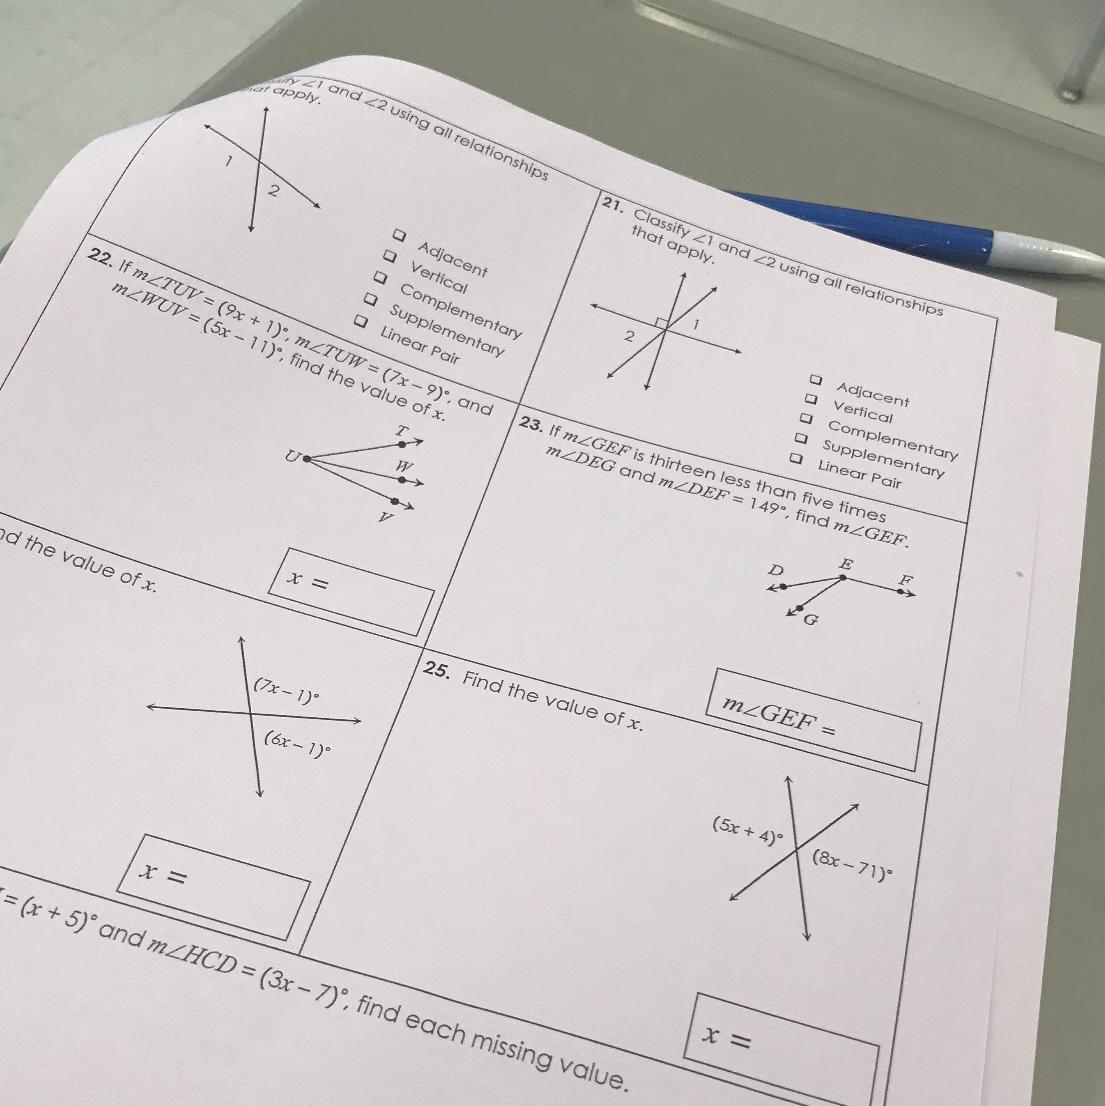 ∠1 and ∠2 using all relationships
that apply.
1
2
Adjacent
Vertical
Complementary
Supplementary
Linear Pair
21. Classify ∠1 and ∠2 using all relationships
that apply.
1
2
Adjacent
Vertical
Complementary
Supplementary
Linear Pair
22. If m∠TUV = (9x + 1)°, m∠TUW = (7x – 9)°, and
m∠WUV = (5x – 11)°, find the value of x.
T
U
W
V
x =
23. If m∠GEF is thirteen less than five times
m∠DEG and m∠DEF = 149°, find m∠GEF.
D
E
F
G
m∠GEF =
the value of x.
(7x – 1)°
(6x – 1)°
x =
25. Find the value of x.
(5x + 4)°
(8x – 71)°
x =
= (x + 5)° and m∠HCD = (3x – 7)°, find each missing value.